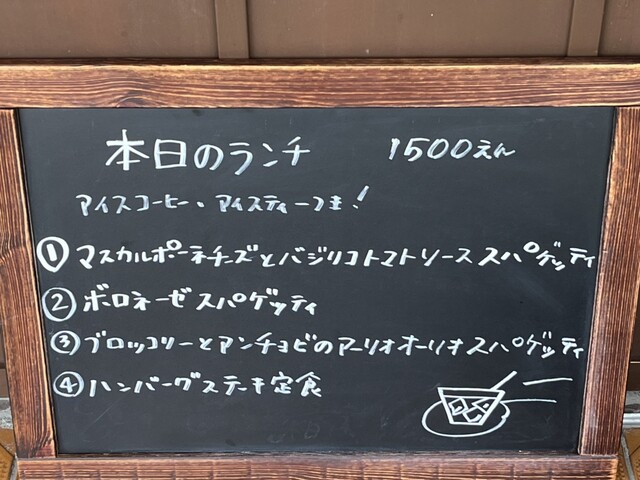 本日のランチ 1500えん
アイスコーヒー、アイスティーつき!
① マスカルポーネチーズとバジリコトマトソーススパゲッティ
② ボロネーゼスパゲッティ
③ ブロッコリーとアンチョビのアーリオオーリオスパゲッティ
④ ハンバーグステーキ定食